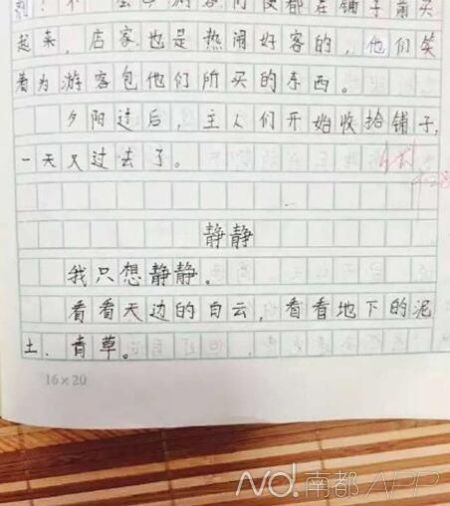 起来，店家也是热闹好客的，他们笑
着为游客包他们所买的东西。
夕阳过后，主人们开始收拾铺子，
一天又过去了。
静静
我只想静静。
看看天边的白云，看看地下的泥
土、青草。
16×20
南都APP